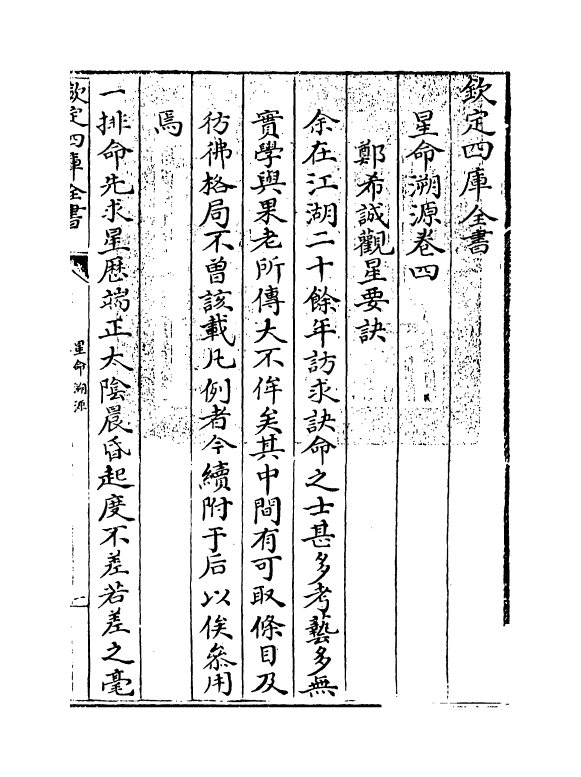 欽定四庫全書
星命溯源卷四
鄭希誠觀星要訣
余在江湖二十餘年訪求訣命之士甚多考藝多無
實學與果老所傳大不侔矣其中間有可取條目及
彷彿格局不曾該載凡例者今續附于后以俟叅用
焉
一排命先求星歴端正太陰晨昏起度不差若差之毫
欽定四庫全書
星命溯源
一